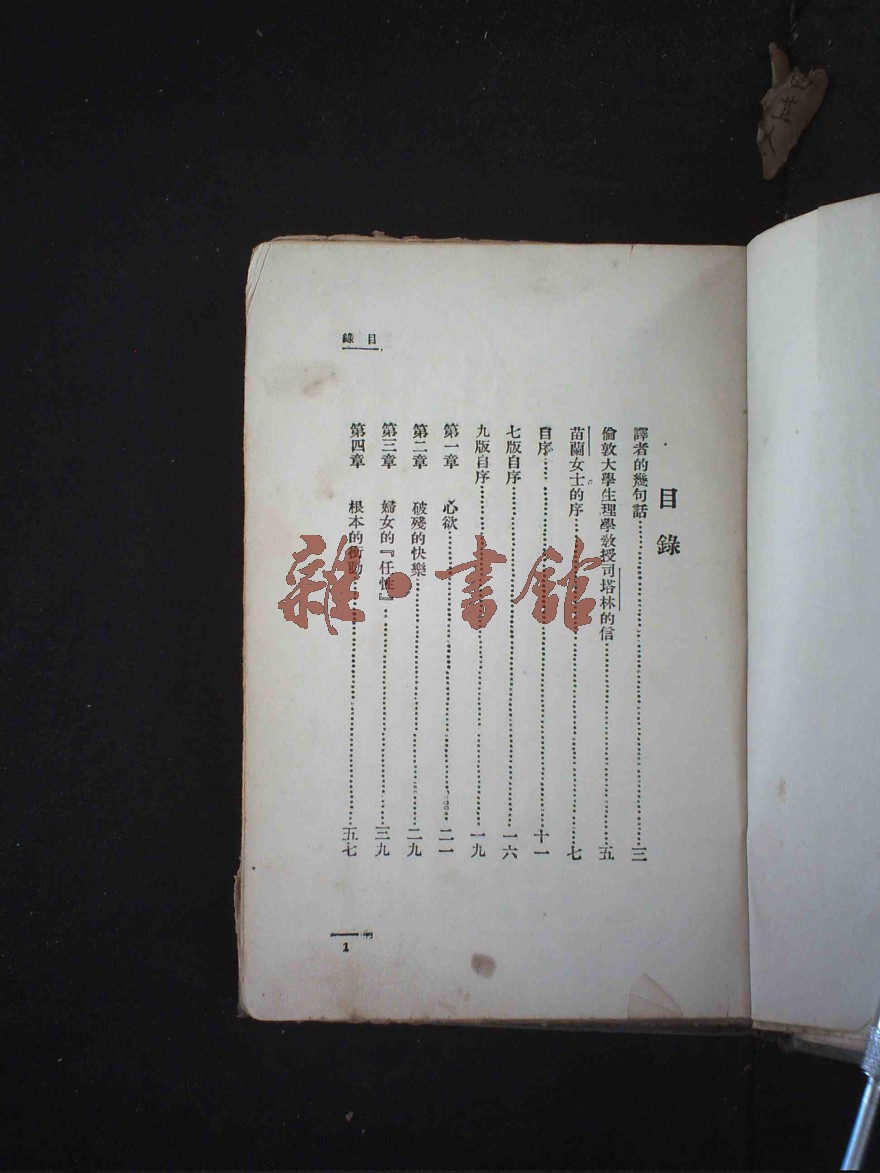 目錄
目錄
譯者的幾句話……三
倫敦大學生理學教授司塔林的信……五
苗蘭女士的序……七
自序……十一
七版自序……一六
九版自序……一九
第一章 心欲……二一
第二章 破殘的快樂……二九
第三章 婦女的『任性』……三九
第四章 根本的衝動……五七
1
雜·書館